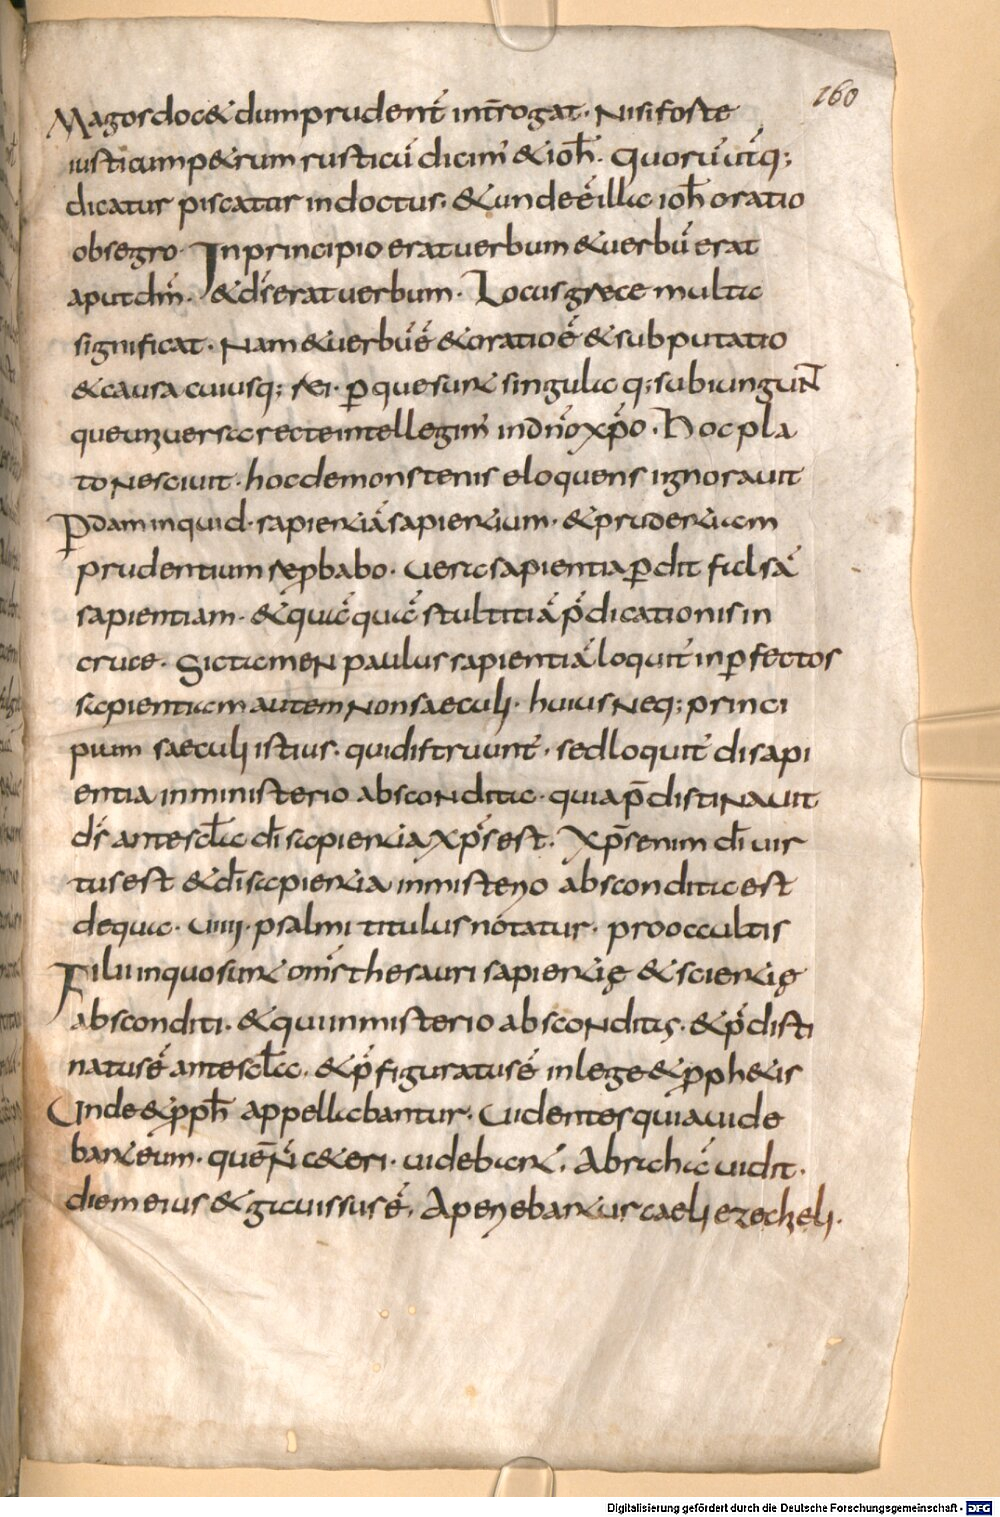 160
Magos doc& dum prudent̄ int̄rogat · Nisi foste
iusticum p&rum rusticū dicim̄ & ioh̄ · quorū ut̄q;
dicatur piscatur indoctus · & unde ē illa ioh̄ oratio
obsegro · In principio erat uerbum & uerbū erat
aput dm̄ · & ds̄ erat uerbum · Locus grece multa
significat · Nam & uerbū ē & oratio ē & subputatio
& causa cuiusq; rei · ꝑ que sunt singula q; subiungunt
que uniuersa recte intellegim̄ in dn̄o xp̄o · Hoc pla
to nesciuit · hoc demonstenis eloquens ignorauit
Ꝑdam inquid · sapientiā sapientium · & prudentiam
prudentium reprbabo · uera sapientia ꝑdit falsā
sapientiam · & quā quā stultitiā p̄dicationis in
cruce · Sic tamen paulus sapientiā loquit̄ in ꝑfectos
sapientiam autem non saeculi · huius neq; princi
pium saeculi istius · qui distruunt̄ · sed loquit̄ di sapi
entia in ministerio abscondita · quia p̄distinauit
ds̄ ante scl̄a dī sapientia xp̄s est · Xp̄s enim dī uir
tus est & dī sapientia in misterio abscondita est
de qua · uiiii · psalmi titulus notatur · pro occultis
Filii in quo sunt om̄s thesauri sapientię & scientię
absconditi · & qui in misterio absconditus · & p̄disti
natus ē ante scl̄a · & p̄figuratus ē in lege & ꝓph&is
Unde & ꝓph̄ appellabantur · Uidentes quia uide
bant eum · quē N̄ c&eri · uidebant · Abrahā uidit ·
diem eius & gauissus ē · Aperiebantur caeli ezecheli ·
Digitalisierung gefördert durch die Deutsche Forschungsgemeinschaft - DFG